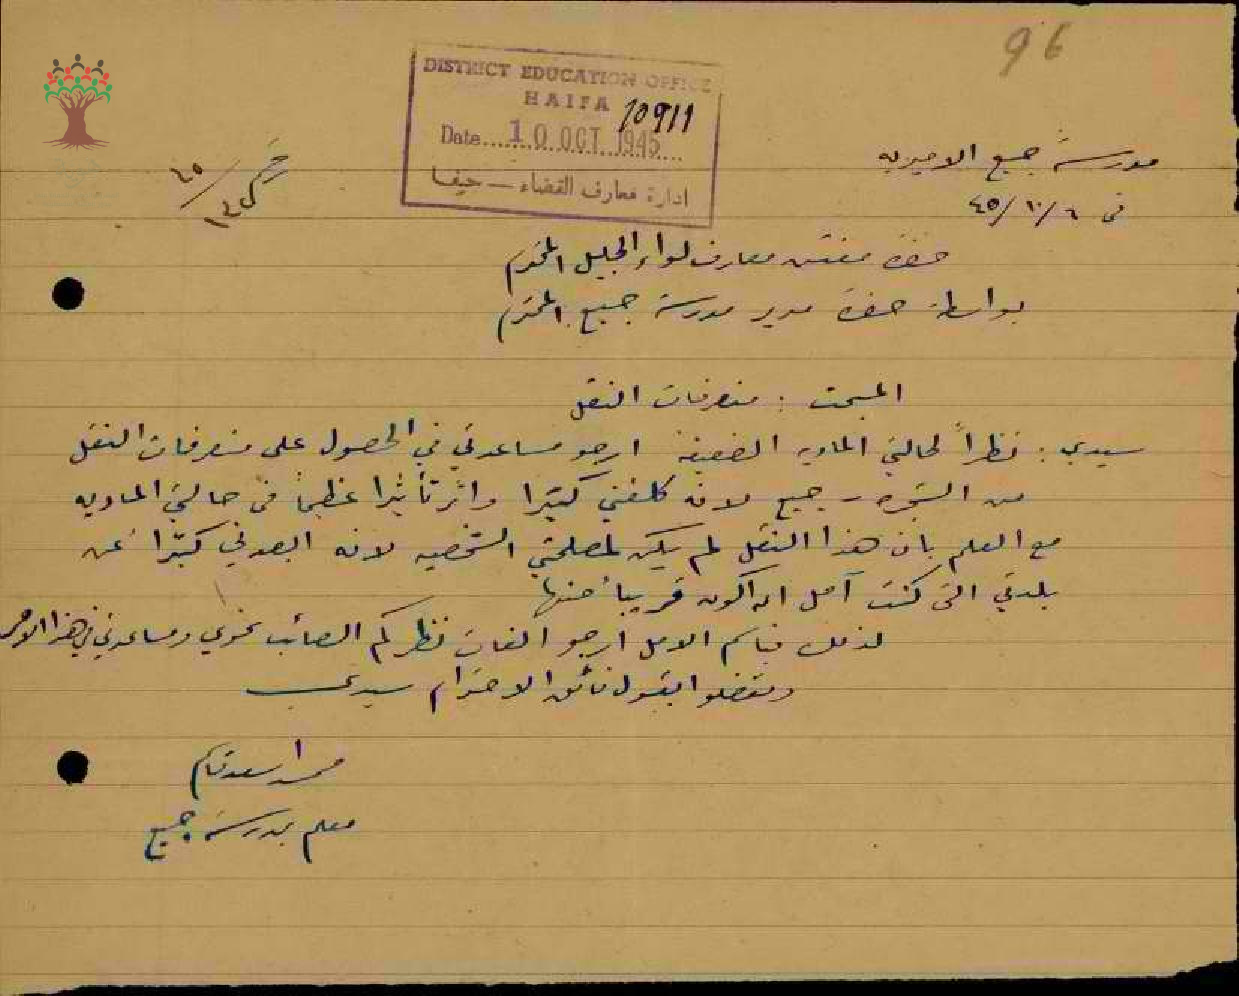 96
DISTRICT EDUCATION OFFICE
HAIFA
10911
Date 10 OCT 1945
ادارة معارف القضاء — حيفا
مدرسة جبع الاميريه
في ٦/١٠/٤٥
١٤/٤٥
حضرة مفتش معارف لواء الجليل المحترم
بواسطة حضرة مدير مدرسة جبع المحترم
المبحث : متفرقات النقل
سيدي : نظراً لحالتي الماديه الضعيفة ارجو مساعدتي في الحصول على متفرقات النقل
من الشجره - جبع لانه كلفني كثيرا واثر تأثيرا عظيماً في حالتي الماديه
مع العلم بان هذا النقل لم يكن لمصلحتي الشخصيه لانه ابعدني كثيرا عن
بلدتي التي كنت آمل ان اكون قريباً منها
لذلك باسم الامل ارجو التفات نظركم الصائب نحوي ومساعدتي في هذا الامر
وتفضلوا بقبول فائق الاحترام سيدي
اسعد قاسم
معلم بمدرسة جبع